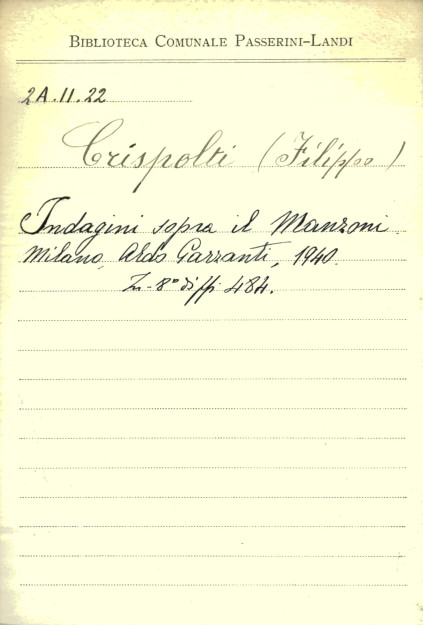 BIBLIOTECA COMUNALE PASSERINI-LANDI
2A.II.22
Crispolti (Filippo)
Indagini sopra il Manzoni.
Milano, Aldo Garzanti, 1940.
In-8° di ff 484.